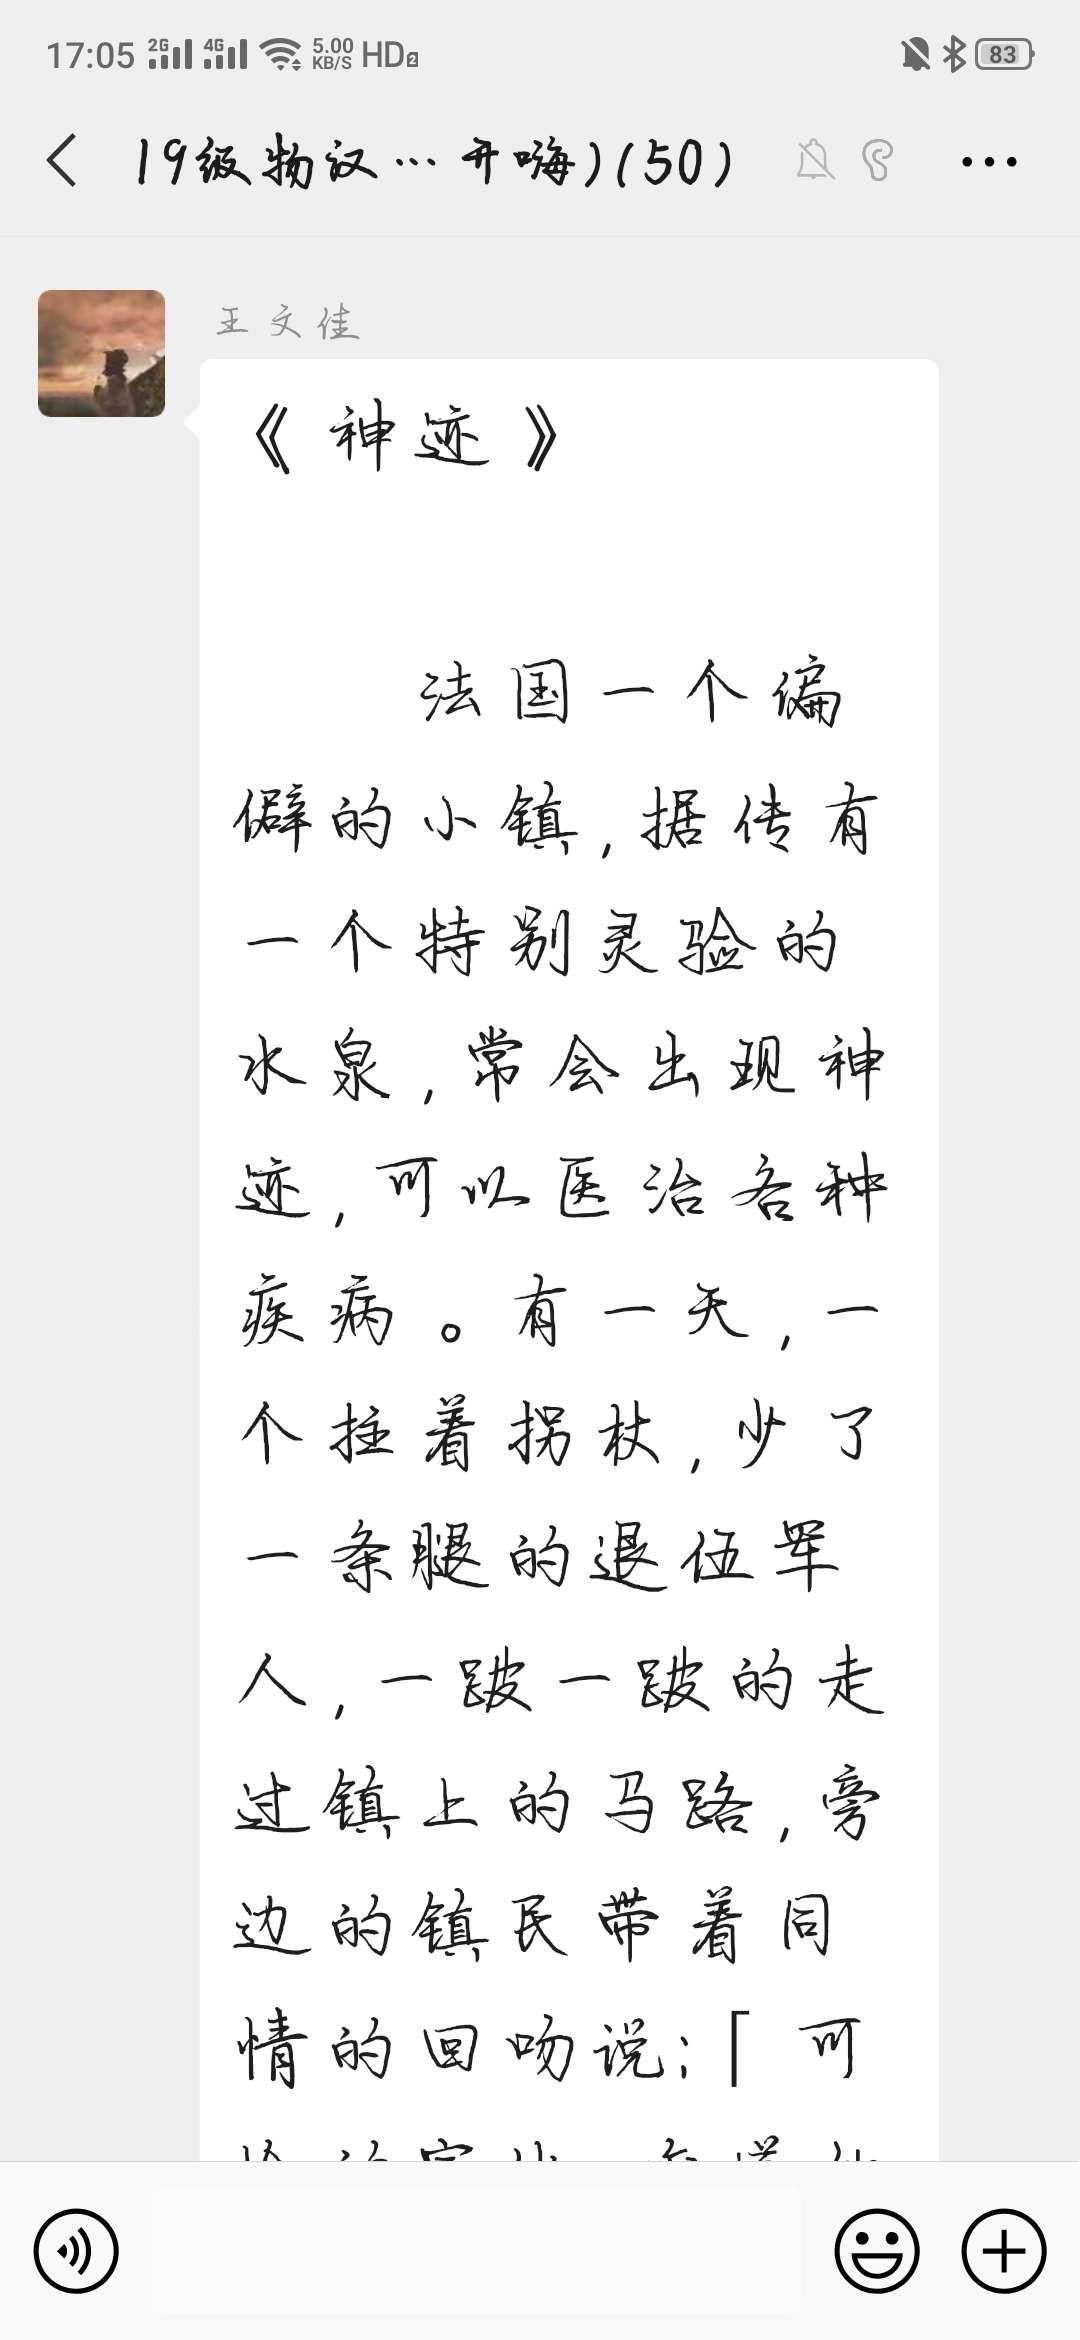 17:05 2G 4G 5.00 KB/S HD2 83
19级物汉…开嗨)(50)
王文佳
《神迹》
法国一个偏
僻的小镇,据传有
一个特别灵验的
水泉,常会出现神
迹,可以医治各种
疾病。有一天,一
个拄着拐杖,少了
一条腿的退伍军
人,一跛一跛的走
过镇上的马路,旁
边的镇民带着同
情的回吻说:「可